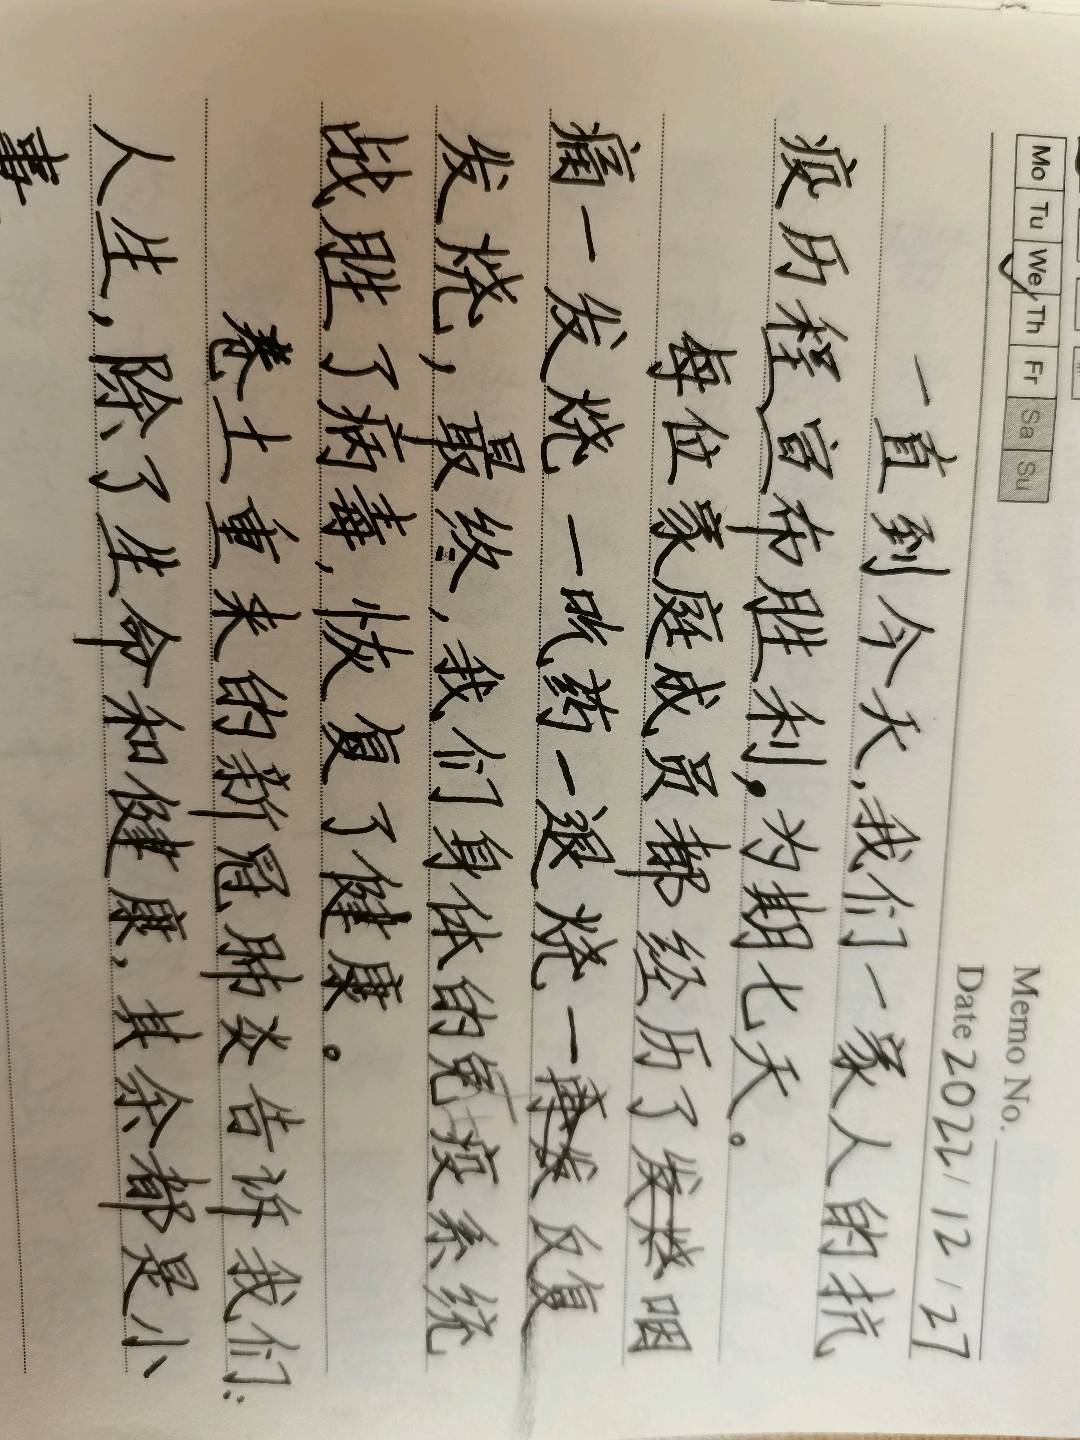 Memo No.
Mo Tu We Th Fr Sa Su
Date 2022/12/27
一直到今天,我们一家人的抗
疫历程宣布胜利,为期七天。
每位家庭成员都经历了发烧咽
痛一发烧一吃药一退烧一再发反复
发烧,最终,我们身体的免疫系统
战胜了病毒,恢复了健康。
卷土重来的新冠肺炎告诉我们:
人生,除了生命和健康,其余都是小
事